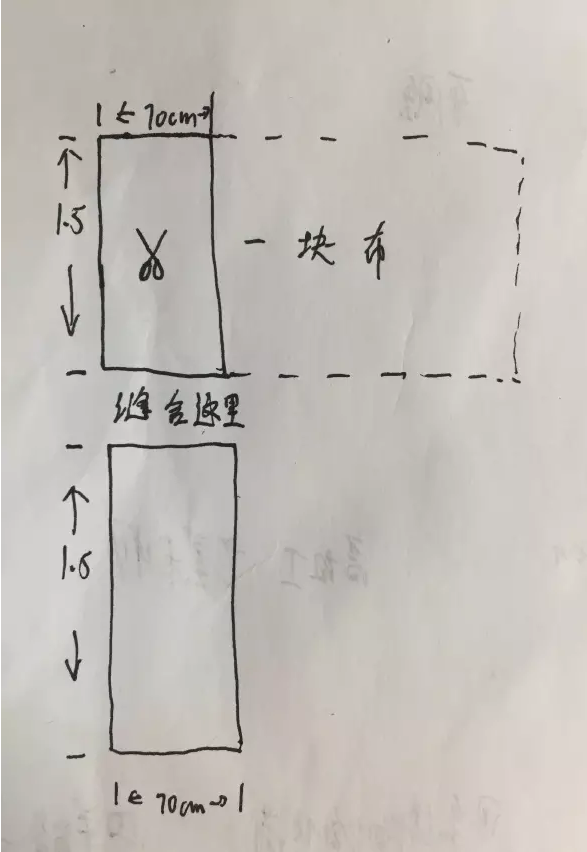 70cm
1.5
一块布
缝合这里
1.5
70cm